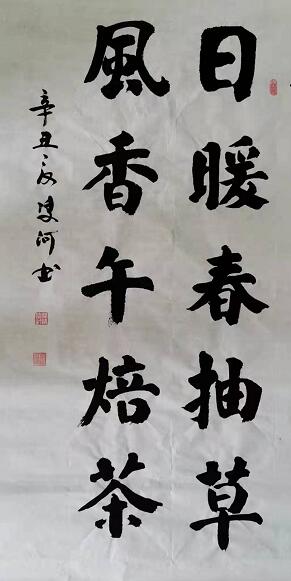 日暖春抽草
風香午焙茶
辛丑之夏河书